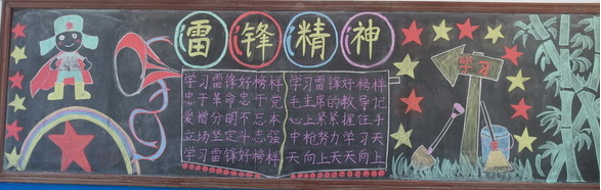 雷锋精神
学习雷锋好榜样
忠于革命忠于党
爱憎分明不忘本
立场坚定斗志强
学习雷锋好榜样
学习雷锋好榜样
毛主席的教导记
心上紧紧握住手
中枪努力学习天
天向上天天向上
学习